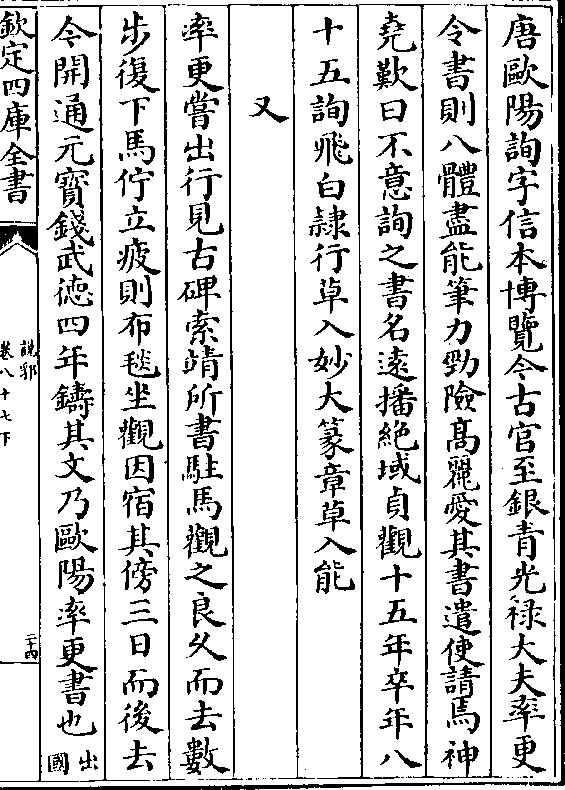 唐歐陽詢字信本博覽今古官至銀青光禄大夫率更
令書則八體盡能筆力勁險髙麗愛其書遣使請焉神
堯歎曰不意詢之書名遠播絶域貞觀十五年卒年八
十五詢飛白隷行草入妙大篆章草入能
又
率更嘗出行見古碑索靖所書駐馬觀之良久而去數
步復下馬佇立疲則布毯坐觀因宿其傍三日而後去
今開通元寳錢武徳四年鑄其文乃歐陽率更書也出國
欽定四庫全書
說郛
卷八十七下
二十四